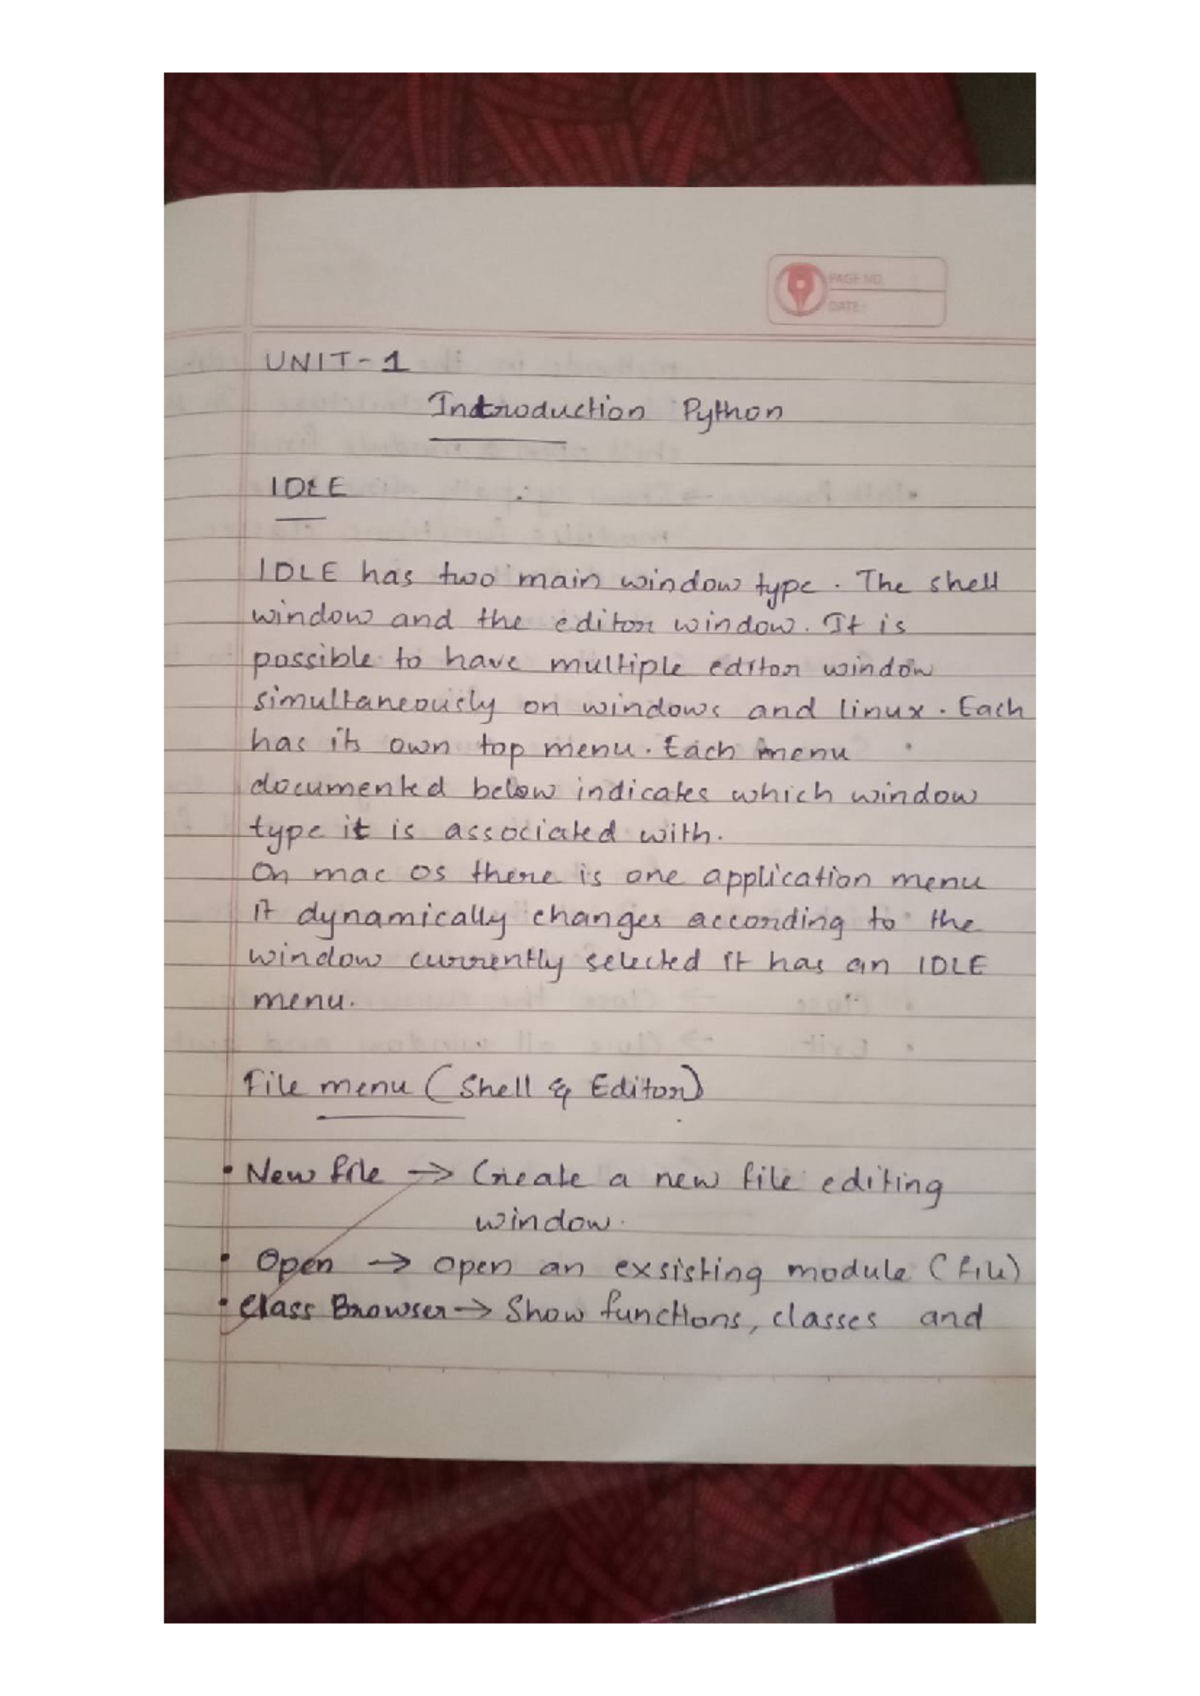 PAGE NO.
DATE:
UNIT-1
Introduction Python
IDLE
IDLE has two main window type. The shell
window and the editor window. It is
possible to have multiple editor window
simultaneously on windows and linux. Each
has its own top menu. Each menu
documented below indicates which window
type it is associated with.
On mac os there is one application menu
It dynamically changes according to the
window currently selected it has an IDLE
menu.
File menu (Shell & Editor)
• New file → Create a new file editing
window.
• Open → Open an exsisting module (file)
• Class Browser → Show functions, classes and